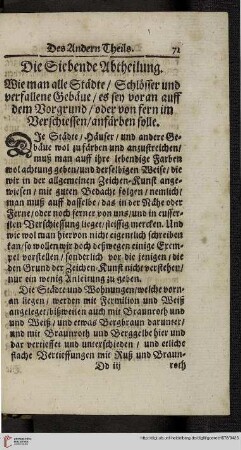 Des Andern Theils. 71
Die Siebende Abtheilung.
Wie man alle Städte / Schlösser und
verfallene Gebäue / es sey voran auff
dem Vorgrund / oder von fern im
Verschiessen / anfärben solle.
DIe Städte / Häuser / und andere Ge-
bäue wol zu färben und anzustreichen /
muß man auff ihre lebendige Farben
wol achtung geben / und derselbigen Weise / die
wir in der allgemeinen Zeichen-Kunst ange-
wiesen / mit guten Bedacht folgen / nemlich /
man muß auff dasselbe / das in der Nähe oder
Ferne / oder noch ferner von uns / und in eusser-
sten Verschiessung lieget / fleissig mercken. Und
wie wol man hiervon nicht eigentlich schreiben
kan / so wollen wir doch deßwegen einige Exem-
pel vorstellen / sonderlich vor die jenigen / die
den Grund der Zeichen-Kunst nicht verstehen /
nur ein wenig Anleitung zu geben.
Die Städte und Wohnungen / welche vorn-
an liegen / werden mit Fermilion und Weiß
angeleget / bißweilen auch mit Braunroth und
und Weiß / und etwas Bergbraun darunter /
und mit Braunroth und Berggelbe hier und
dar vertieffet und unterschieden / und etliche
flache Vertieffungen mit Ruß und Braun-
Dd iij roth